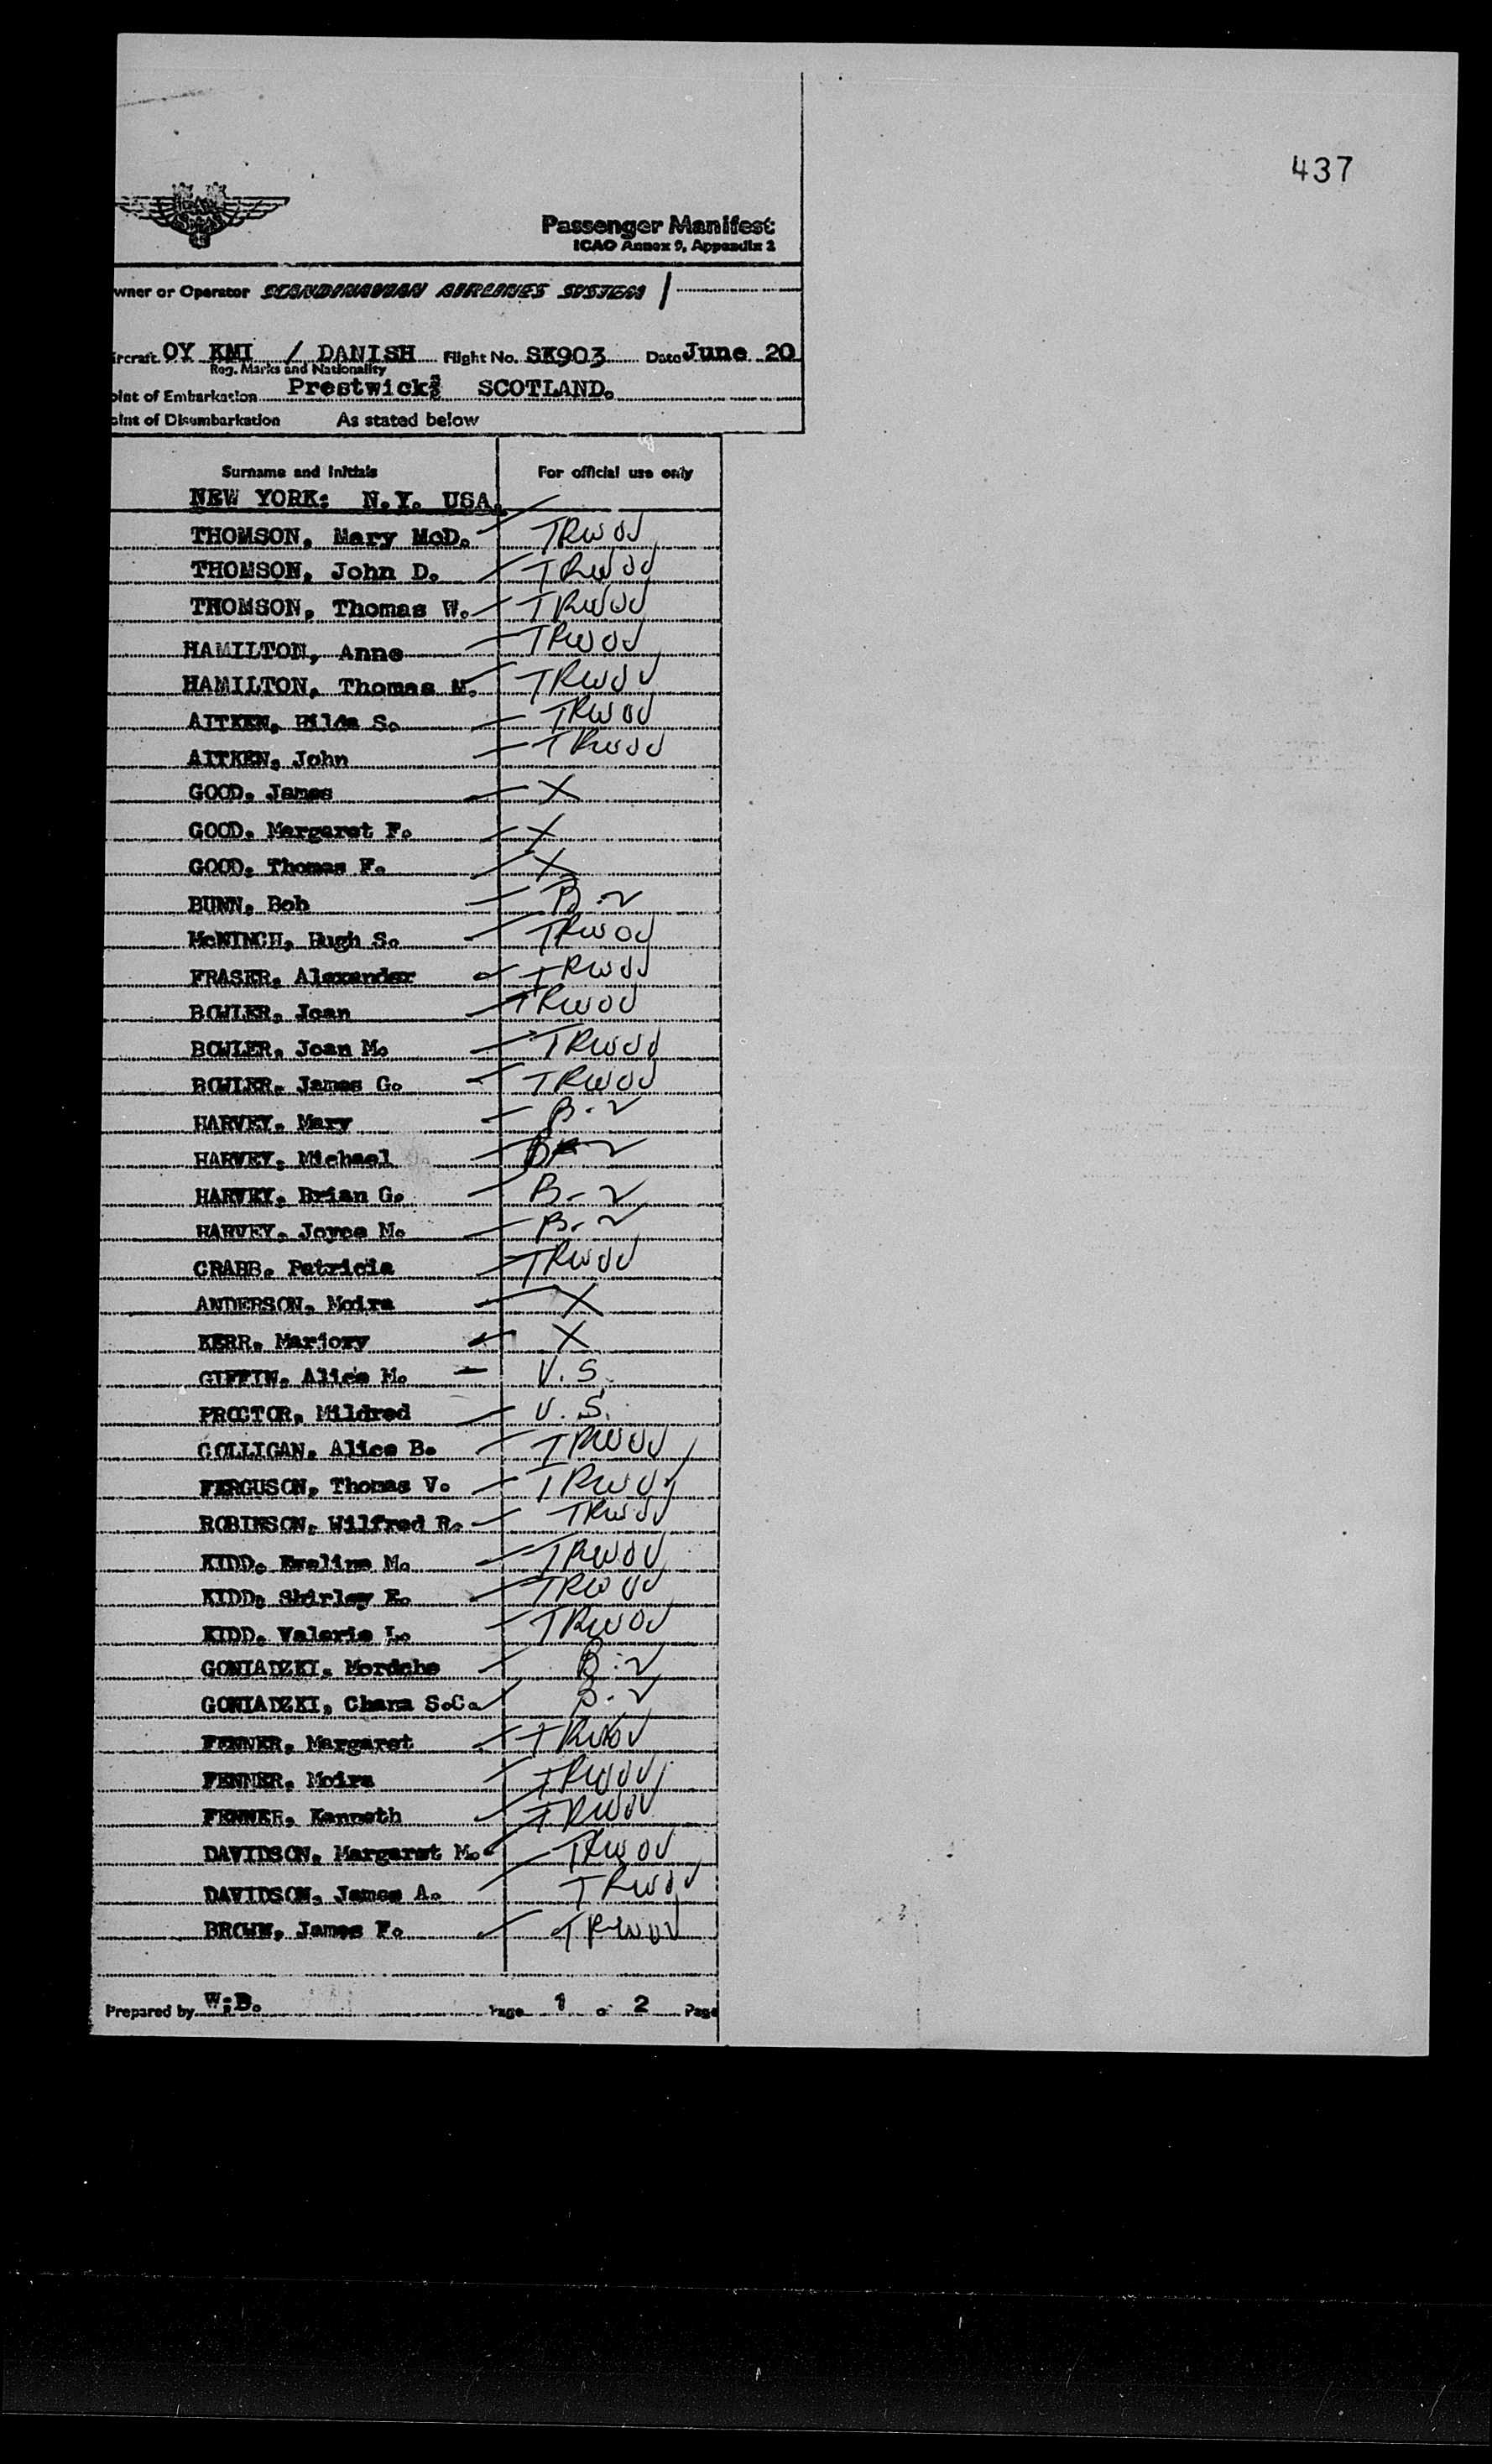 437
Passenger Manifest
ICAO Annex 9, Appendix 2
wner or Operator SCANDINAVIAN AIRLINES SYSTEM
ircraft OY KMI / DANISH Flight No. SK903 Date June 20
Reg. Marks and Nationality
oint of Embarkation Prestwick SCOTLAND.
oint of Disembarkation As stated below
Surname and Initials For official use only
NEW YORK: N.Y. USA.
THOMSON, Mary McD. TRWOV
THOMSON, John D. TRWOV
THOMSON, Thomas W. TRWOV
HAMILTON, Anne TRWOV
HAMILTON, Thomas M. TRWOV
AITKEN, Hilda S. TRWOV
AITKEN, John TRWOV
GOOD, James X
GOOD, Margaret F. X
GOOD, Thomas F. X
BUNN, Bob B-2
McNINCH, Hugh S. TRWOV
FRASER, Alexander TRWOV
BOWLER, Joan TRWOV
BOWLER, Joan M. TRWOV
BOWLER, James G. TRWOV
HARVEY, Mary B-2
HARVEY, Michael B-2
HARVEY, Brian G. B-2
HARVEY, Joyce M. B-2
CRABB, Patricia TRWOV
ANDERSON, Moira X
KERR, Marjory X
GIFFIN, Alice M. U.S.
PROCTOR, Mildred U.S.
COLLIGAN, Alice B. TRWOV
FERGUSON, Thomas V. TRWOV
ROBINSON, Wilfred R. TRWOV
KIDD, Eveline M. TRWOV
KIDD, Shirley E. TRWOV
KIDD, Valerie L. TRWOV
GONIADZKI, Mordche B-2
GONIADZKI, Chana S.C. B-2
FENNER, Margaret TRWOV
FENNER, Moira TRWOV
FENNER, Kenneth TRWOV
DAVIDSON, Margaret M. TRWOV
DAVIDSON, James A. TRWOV
BROWN, James F. TRWOV
Prepared by W:B. Page 1 o 2 Page